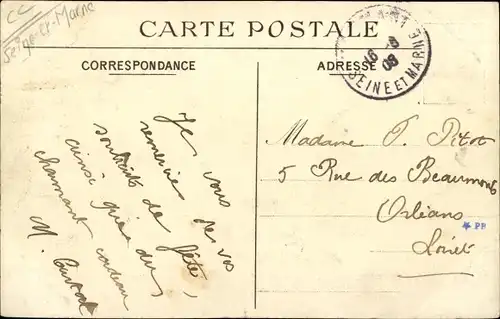 CC
Seine-et-Marne
CARTE POSTALE
CORRESPONDANCE
ADRESSE
16 -8
08
SEINE ET MARNE
Je vous
remercie de vos
souhaits de fête,
ainsi que du
charmant cadeau
M.
Madame P. Pitot
5 Rue des Beaumonts
Orléans
Loiret
PP